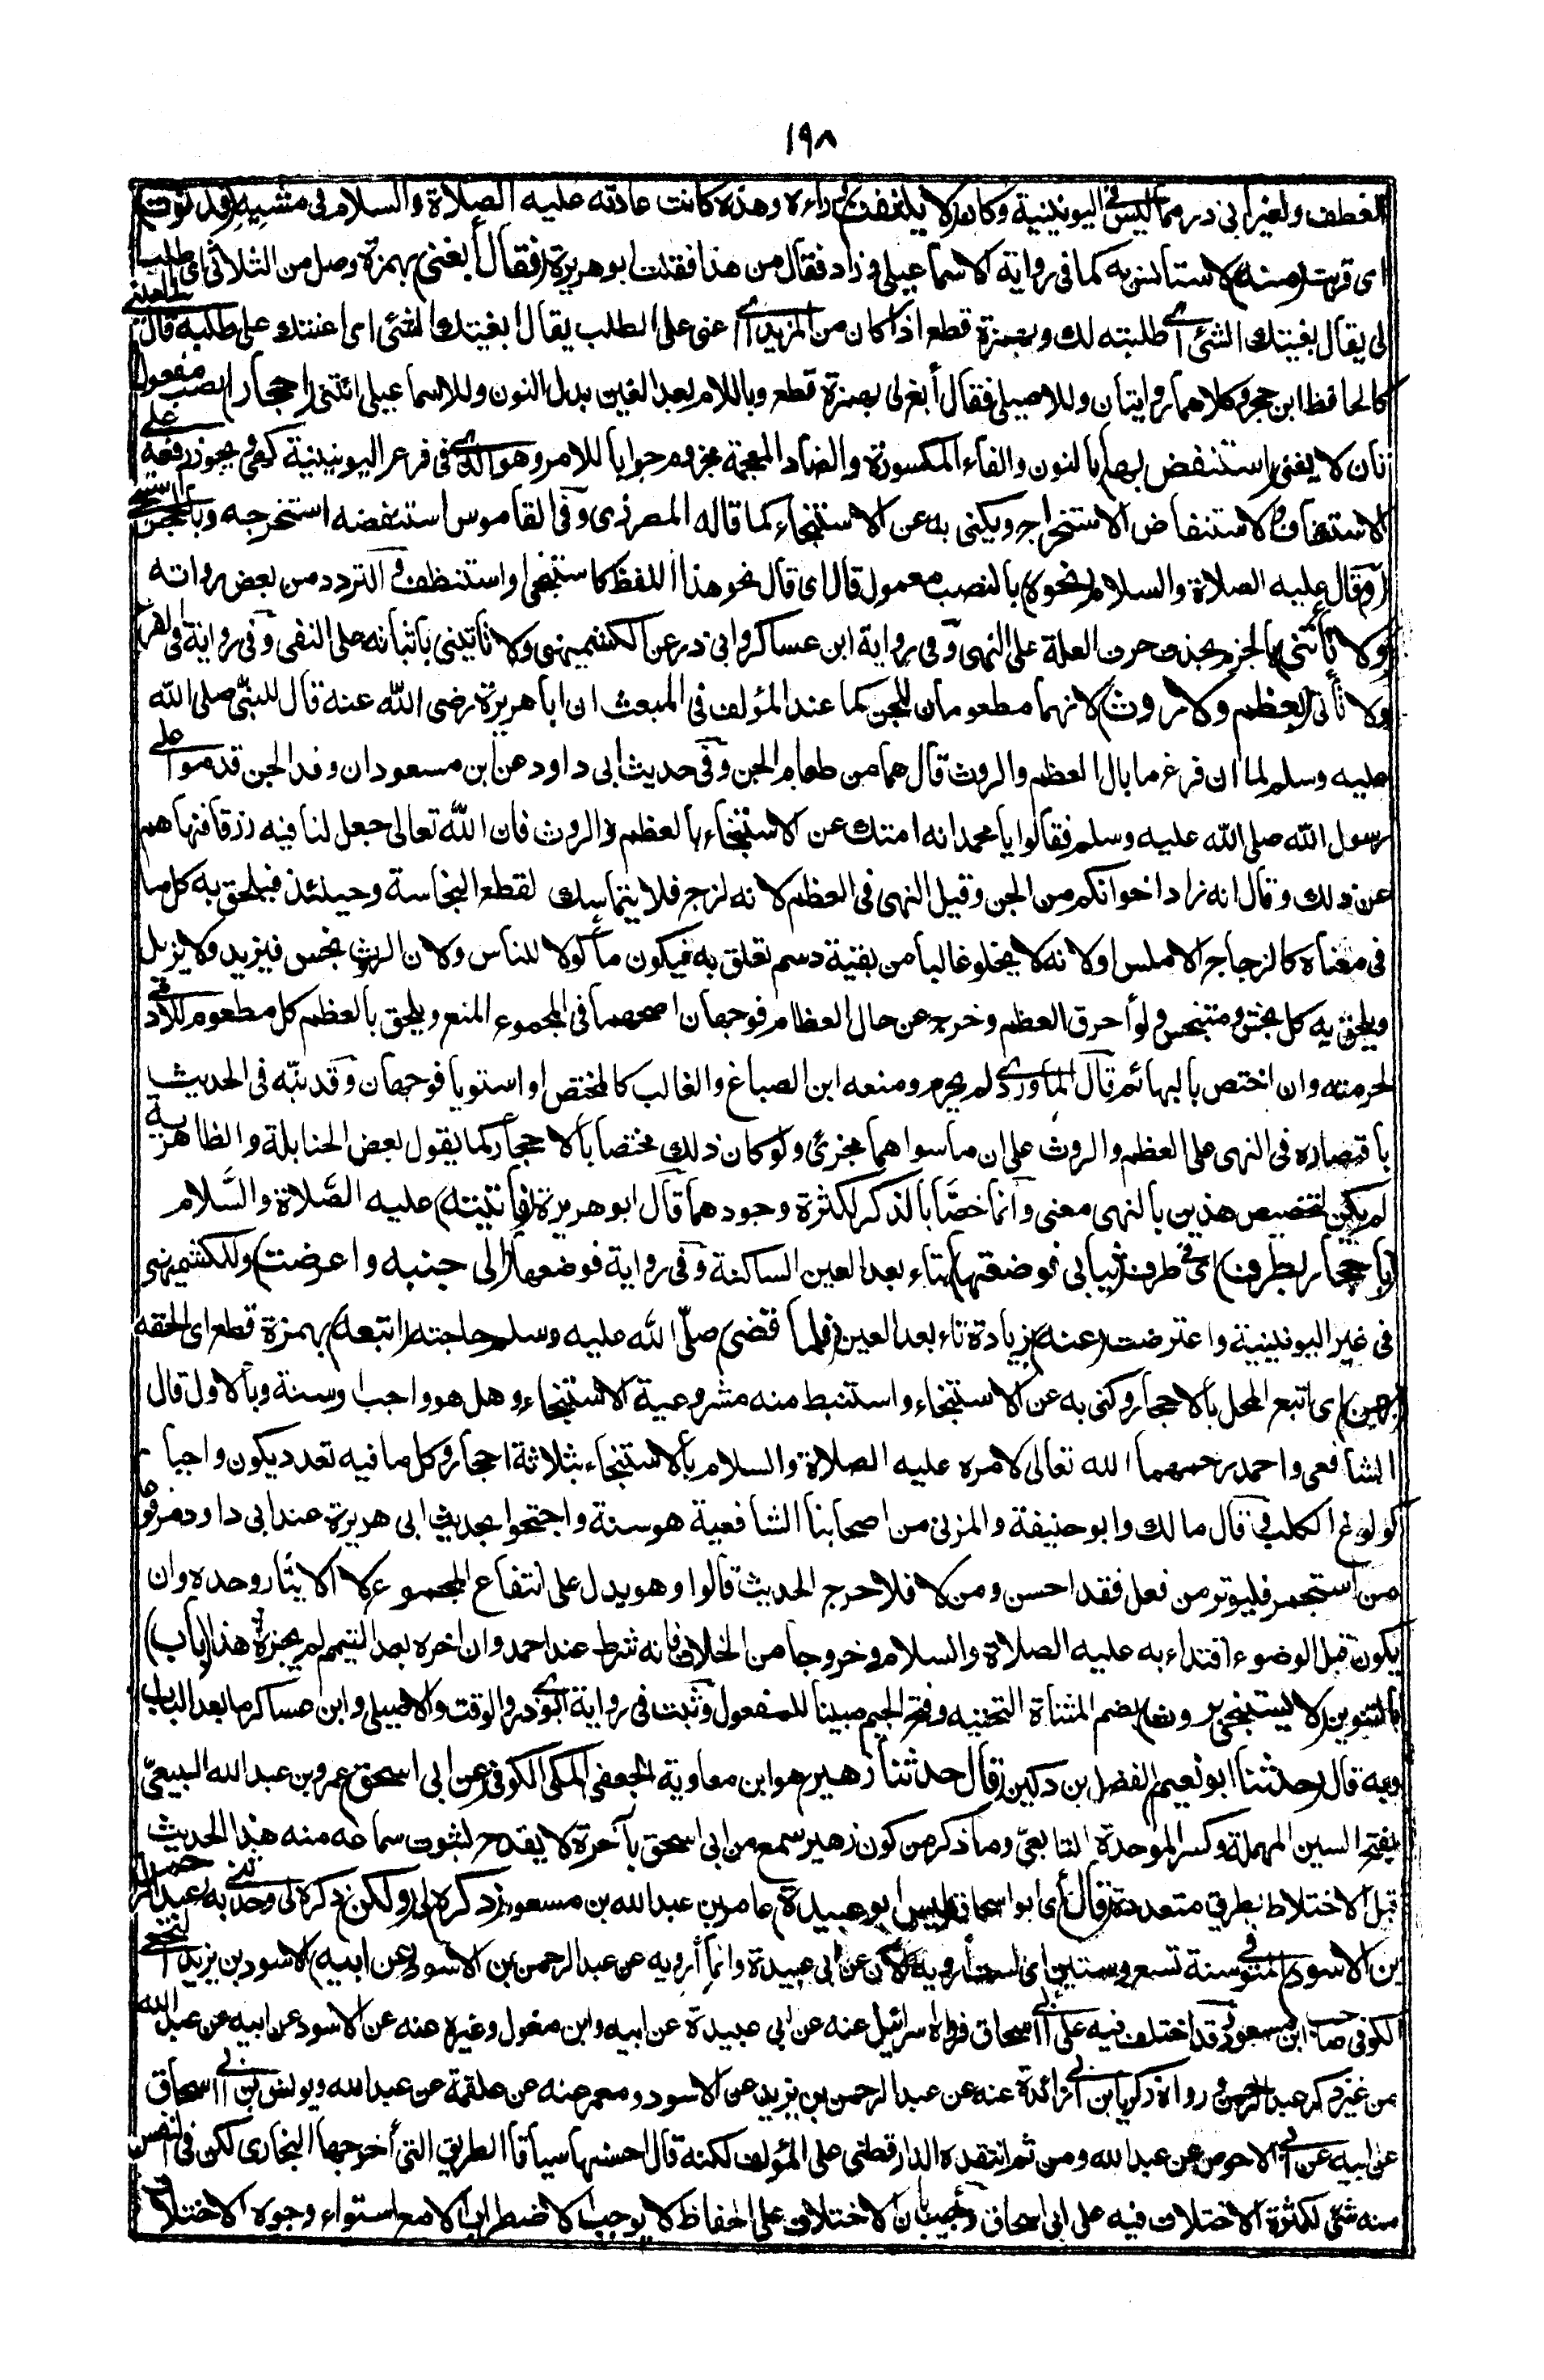 ١٩٨
العطف ولغير ابى ذر مما ليس فى اليونينية وكان (لا يلتفت) وراءه وهذه كانت عادته عليه الصلاة والسلام فى مشيه (فدنوت)
اى قربت (منه) لاستانس به كما فى رواية الاسماعيلى وزاد فقال من هذا فقلت ابو هريرة (فقال أبغنى) بهمزة وصل من الثلاثى اى طلب
لى يقال بغيتك الشئ اى طلبته لك وبهمزة قطع اذا كان من المزيد اى اعنى على الطلب يقال ابغيتك الشئ اى اعنتك على طلبه قال العينى
كالحافظ ابن حجر وكلاهما روايتان وللاصيلى فقال أبغ لى بهمزة قطع وباللام بعد الغين بدل النون وللاسماعيلى ائتنى (احجارا) نصب مفعول
ثان لابغنى (استنفض بها) بالنون والفاء المكسورة والضاد المعجمة مجزوم جوابا للامر وهو الذى فى فرع اليونينية كهى ويجوز رفعه على
الاستئناف والاستنفاض الاستخراج ويكنى به عن الاستنجاء كما قاله المطرزى وفى القاموس استنفضه استخرجه وبالحجر استنجى
(او) قال عليه الصلاة والسلام (نحوه) بالنصب معمول قال اى قال نحو هذا اللفظ كاستنجى او استنظف والتردد من بعض رواته
(ولا تأتنى) بالجزم بحذف حرف العلة على النهى وفى رواية ابن عساكر وابى ذر عن الكشميهنى ولا تاتينى باثباته على النفى وفى رواية فى الفرع
ولا تأتى (بعظم ولا روث) لانهما مطعومان للجن كما عند المؤلف فى المبعث ان ابا هريرة رضى الله عنه قال للنبى صلى الله
عليه وسلم لما ان فرغ ما بال العظم والروث قال هما من طعام الجن وفى حديث ابى داود عن ابن مسعود ان وفد الجن قدموا على
رسول الله صلى الله عليه وسلم فقالوا يا محمد انه امتك عن الاستنجاء بالعظم والروث فان الله تعالى جعل لنا فيه رزقا فنهاهم
عن ذلك وقال انه زاد اخوانكم من الجن وقيل النهى فى العظم لانه لزج فلا يتماسك لقطع النجاسة وحينئذ فيلحق به كل ما
فى معناه كالزجاج الاملس او لانه لا يخلو غالبا من بقية دسم تعلق به فيكون مأكولا للناس ولان الروث نجس فيزيد ولا يزيل
ويلحق به كل نجس ومتنجس ولو أحرق العظم وخرج عن حال العظام فوجهان اصحهما فى المجموع المنع ويلحق بالعظم كل مطعوم للآدمى
لحرمته وان اختص بالبهائم قال الماوردى لم يحرم ومنعه ابن الصباغ والغالب كالمختص او استويا فوجهان وقد نبه فى الحديث
باقتصاره فى النهى على العظم والروث على ان ما سواهما مجزئ ولو كان ذلك مختصا بالاحجار كما يقول بعض الحنابلة والظاهرية
لم يكن لتخصيص هذين بالنهى معنى وانما خصّا بالذكر لكثرة وجودهما قال ابو هريرة (فاتيته) عليه الصّلاة والسّلام
(باحجار بطرف) اى فى طرف (ثيابى فوضعتها) بتاء بعد العين الساكنة وفى رواية فوضعها (الى جنبه واعرضت) وللكشميهنى
فى غير اليونينية واعترضت (عنه) بزيادة تاء بعد العين (فلما قضى) صلّى الله عليه وسلم حاجته (اتبعه) بهمزة قطع اى الحقه
(بهن) اى اتبع المحل بالاحجار وكنى به عن الاستنجاء واستنبط منه مشروعية الاستنجاء وهل هو واجب او سنة وبالاول قال
الشافعى واحمد رحمهما الله تعالى لامره عليه الصلاة والسلام بالاستنجاء بثلاثة احجار وكل ما فيه تعدد يكون واجبا
كولوغ الكلب وقال مالك وابو حنيفة والمزنى من اصحابنا الشافعية هو سنة واحتجوا بحديث ابى هريرة عند ابى داود مرفوعا
من استجمر فليوتر من فعل فقد احسن ومن لا فلا حرج الحديث قالوا وهو يدل على انتفاع المجموع لا الايتار وحده وان
يكون قبل الوضوء اقتداء به عليه الصلاة والسلام وخروجا من الخلاف فانه شرط عند احمد وان اخره بعد التيمم لم يجزه هذا (باب)
بالتنوين (لا يستنجى بروث) بضم المثناة التحتيه وفتح الجيم مبينا للمفعول وثبت فى رواية ابوى ذر والوقت والاصيلى وابن عساكر ما بعد الباب
وبه قال (حدثنا ابو نعيم) الفضل بن دكين (قال حدثنا زهير) هو ابن معاوية الجعفى المكى الكوفى (عن ابى اسحق) عمرو بن عبد الله السبيعىّ
بفتح السين المهملة وكسر الموحدة التابعىّ وما ذكر من كون زهير سمع من ابى اسحق بآخرة لا يقدح لثبوت سماعه منه هذا الحديث
قبل الاختلاط بطرق متعددة (قال) أى ابو اسحاق (ليس ابو عبيدة) عامر بن عبد الله بن مسعود (ذكره) لى (ولكن) ذكره لى وحدثنى به (عبد الرحمن
بن الاسود) المتوفى سنة تسع وتسعين اى لست أرويه الآن عن ابى عبيدة وانما أرويه عن عبد الرحمن بن الاسود (عن ابيه) الاسود بن يزيد النخعى
الكوفى صاحب ابن مسعود وقد اختلف فيه على ابى اسحاق فرواه اسرائيل عنه عن ابى عبيدة عن ابيه وابن مغول وغيره عنه عن الاسود عن ابيه عن عبد الله
من غير ذكر عبد الرحمن ورواه زكريا بن ابى زائدة عنه عن عبد الرحمن بن يزيد عن الاسود ومعمر عنه عن علقمة عن عبد الله ويونس بن ابى اسحاق
عن ابيه عن ابى الاحوص عن عبد الله ومن ثم انتقده الدارقطنى على المؤلف لكنه قال احسنها سياقا الطريق التى أخرجها البخارى لكن فى النفس
منه شئ لكثرة الاختلاف فيه على ابى اسحاق وأجيب بان الاختلاف على الحفاظ لا يوجب الاضطراب الا مع استواء وجوه الاختلاف